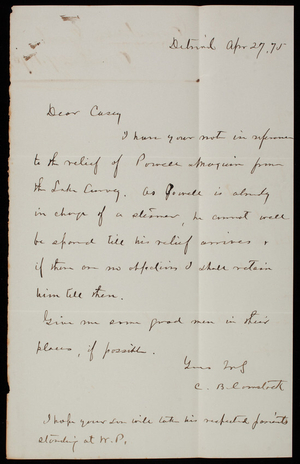 Detroit Apr 27, 75
Dear Casey
I have your not in reference
to the relief of Powell & Maguire from
the Lake Survey. As Powell is already
in charge of a steamer, he cannot well
be spared till his relief arrives &
if there are no objections I shall retain
him till then.
Give me some good men in their
places, if possible.
Yours truly
C. B. Comstock
I hope your son will take his respected parent's
standing at W. P.